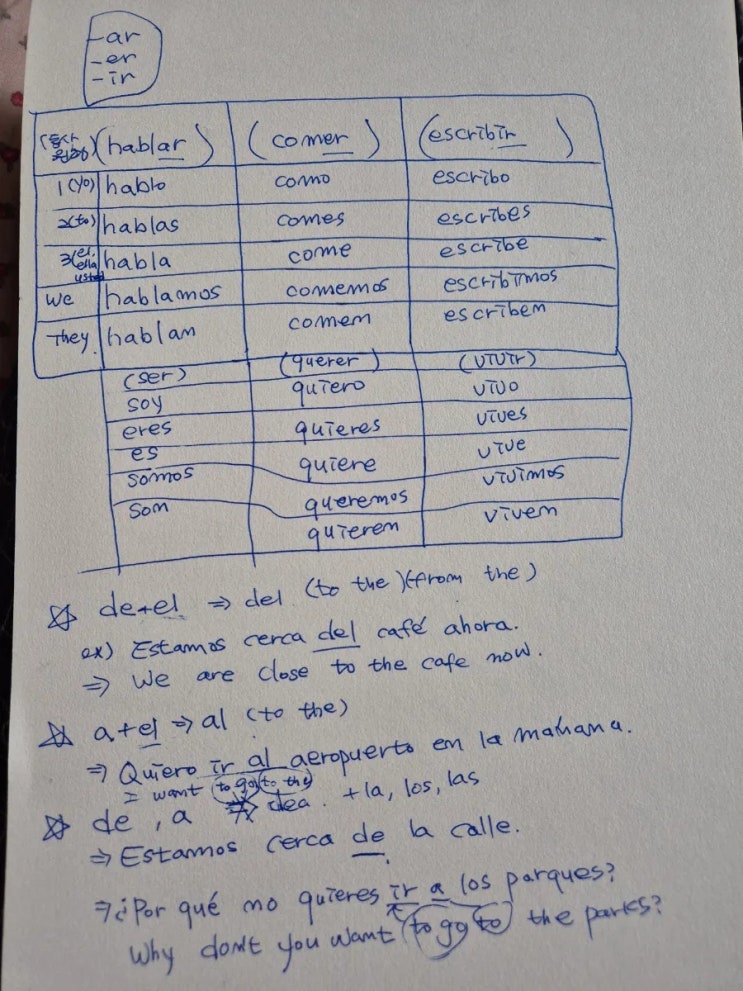 -ar
-er
-ir
(동사원형) (hablar) (comer) (escribir)
1 (yo) hablo como escribo
2 (tú) hablas comes escribes
3 (el, ella, usted habla come escribe
we hablamos comemos escribimos
They hablan comen escriben
(ser) (querer) (vivir)
soy quiero vivo
eres quieres vives
es quiere vive
somos queremos vivimos
son quieren viven
☆ de+el ⇒ del (to the) (from the)
ex) Estamos cerca del café ahora.
⇒ We are close to the cafe now.
☆ a+el ⇒ al (to the)
⇒ Quiero ir al aeropuerto en la mañana.
I want (to go) (to the)
☆ de, a + la, los, las
⇒ Estamos cerca de la calle.
⇒ ¿Por qué no quieres ir a los parques?
Why don't you want (to go to) the parks?